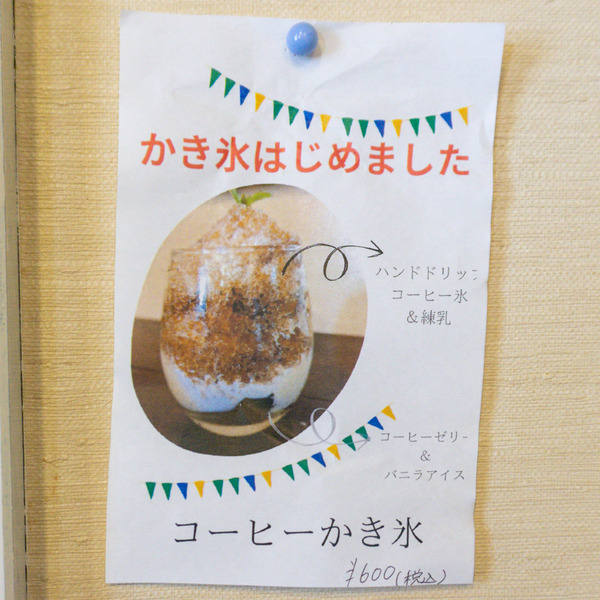 かき氷はじめました
ハンドドリップ
コーヒー氷
&練乳
コーヒーゼリー
&
バニラアイス
コーヒーかき氷
¥600(税込)